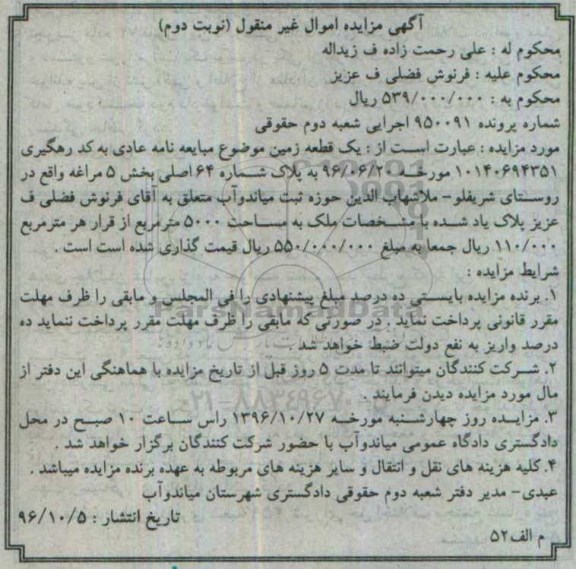 آگهی مزایده اموال غیر منقول (نوبت دوم)
محکوم له : علی رحمت زاده ف زیداله
محکوم علیه : فرنوش فضلی ف عزیز
محکوم به : ۵۳۹/۰۰۰/۰۰۰ ریال
شماره پرونده ۹۵۰۰۹۱ اجرایی شعبه دوم حقوقی
مورد مزایده : عبارت است از : یک قطعه زمین موضوع مبایعه نامه عادی به کد رهگیری
۱۰۱۴۰۶۹۴۳۵۱ مورخه ۹۶/۰۶/۲۰ به پلاک شماره ۶۴ اصلی بخش ۵ مراغه واقع در
روستای شریفلو- ملاشهاب الدین حوزه ثبت میاندوآب متعلق به آقای فرنوش فضلی ف
عزیز پلاک یاد شده با مشخصات ملک به مساحت ۵۰۰۰ مترمربع از قرار هر مترمربع
۱۱۰/۰۰۰ ریال جمعا به مبلغ ۵۵۰/۰۰۰/۰۰۰ ریال قیمت گذاری شده است است .
شرایط مزایده :
۱. برنده مزایده بایستی ده درصد مبلغ پیشنهادی را فی المجلس و مابقی را ظرف مهلت
مقرر قانونی پرداخت نماید . در صورتی که مابقی را ظرف مهلت مقرر پرداخت ننماید ده
درصد واریز به نفع دولت ضبط خواهد شد .
۲. شرکت کنندگان میتوانند تا مدت ۵ روز قبل از تاریخ مزایده با هماهنگی این دفتر از
مال مورد مزایده دیدن فرمایند .
۳. مزایده روز چهارشنبه مورخه ۱۳۹۶/۱۰/۲۷ راس ساعت ۱۰ صبح در محل
دادگستری دادگاه عمومی میاندوآب با حضور شرکت کنندگان برگزار خواهد شد .
۴. کلیه هزینه های نقل و انتقال و سایر هزینه های مربوطه به عهده برنده مزایده میباشد .
عبدی- مدیر دفتر شعبه دوم حقوقی دادگستری شهرستان میاندوآب
تاریخ انتشار : ۹۶/۱۰/۵
م الف ۵۲
ParsNamadData